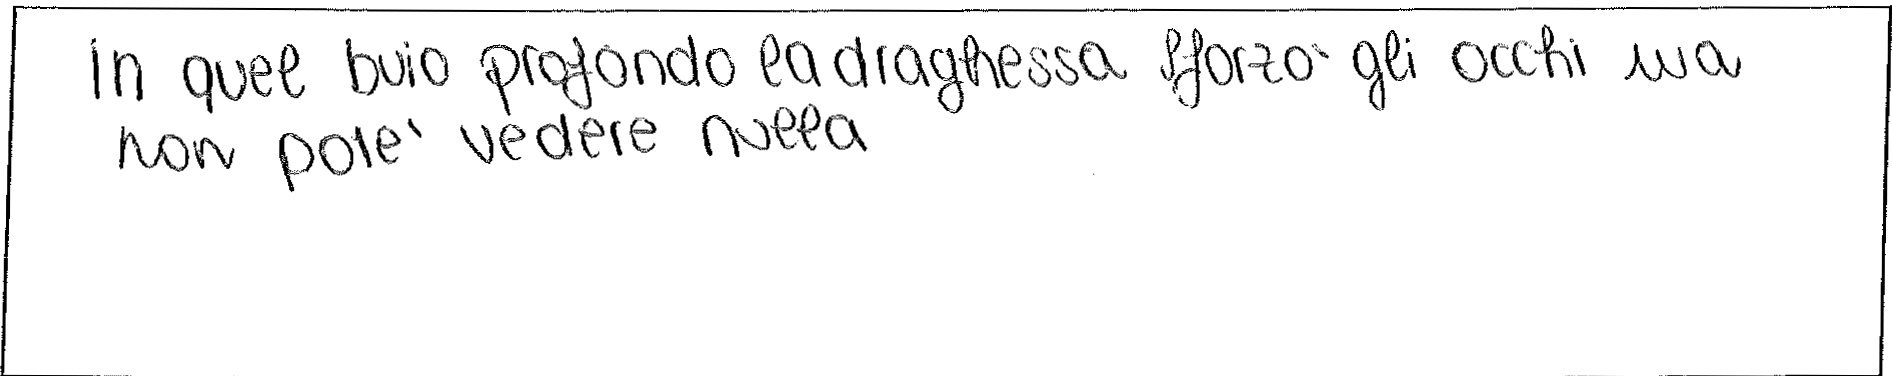 in quel buio profondo la draghessa sforzo' gli occhi ma
non pote' vedere nulla